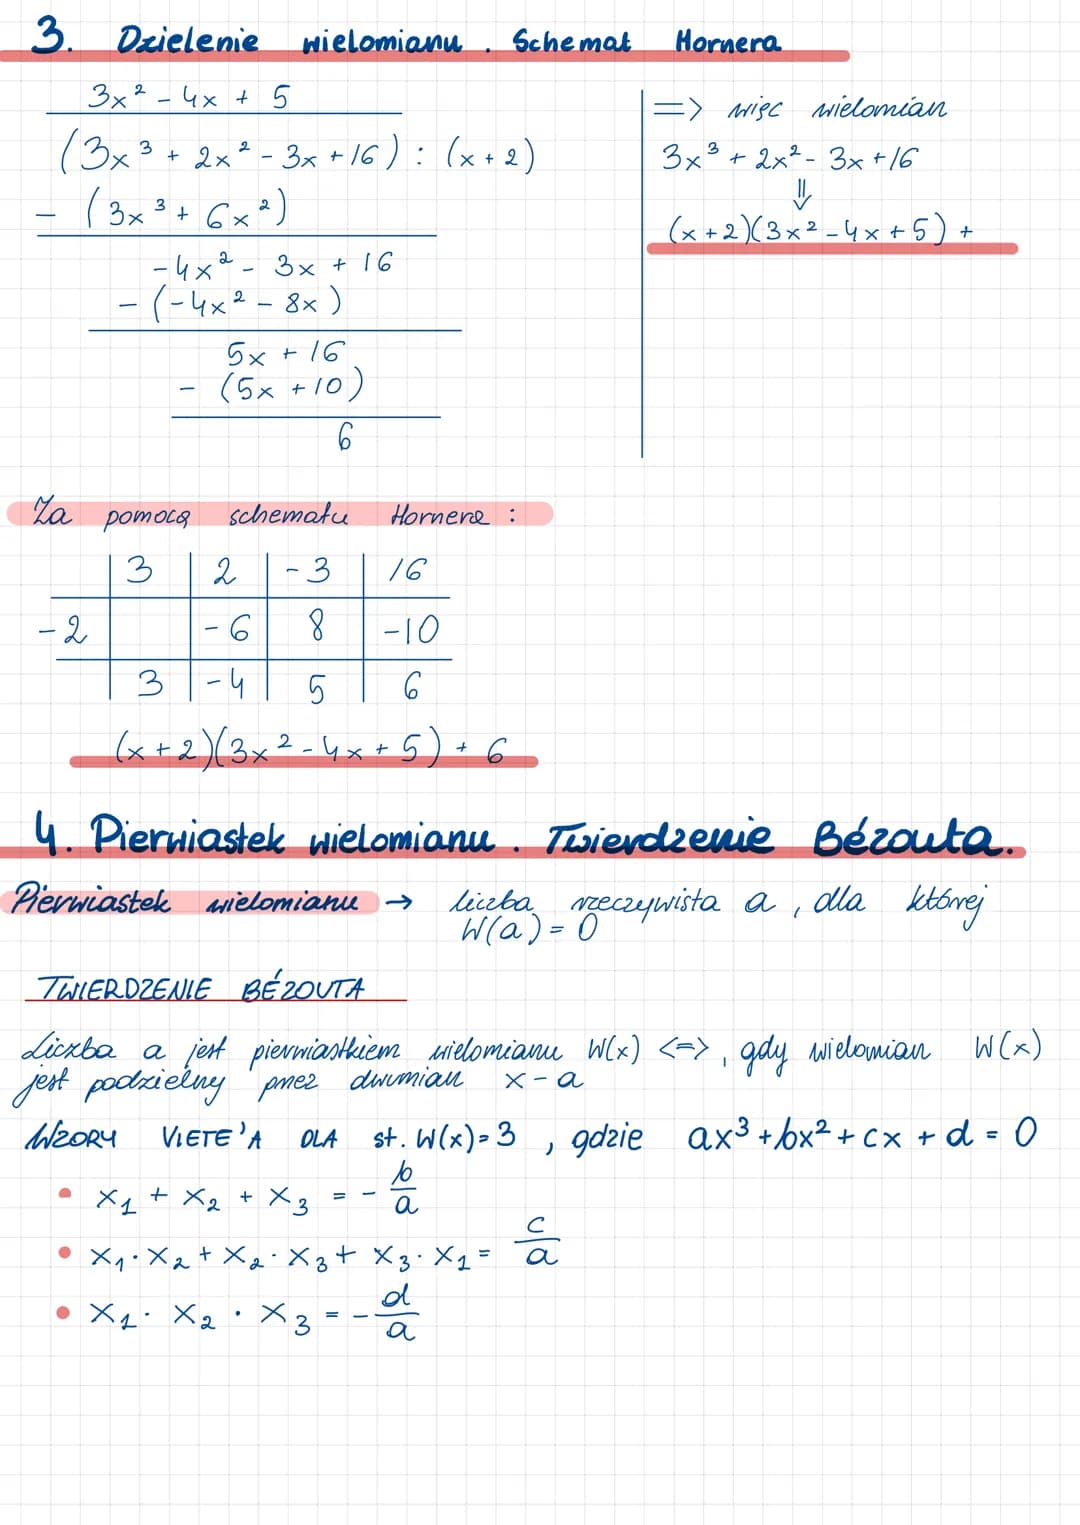 3. Dzielenie wielomianu. Schemat Hornera
3x² - 4x + 5
(3x³ + 2x² - 3x + 16) : (x + 2)
- (3x³ + 6x²)
-4x² - 3x + 16
- (-4x² - 8x)
5x + 16
- (5x + 10)
6
=> więc wielomian
3x³ + 2x² - 3x + 16
⇓
(x + 2)(3x² - 4x + 5) +
Za pomocą schematu Hornera :
3 2 -3 16
-2 -6 8 -10
3 -4 5 6
(x + 2)(3x² - 4x + 5) + 6
4. Pierwiastek wielomianu. Twierdzenie Bézouta.
Pierwiastek wielomianu → liczba rzeczywista a, dla której
W(a) = 0
TWIERDZENIE BÉZOUTA
Liczba a jest pierwiastkiem wielomianu W(x) <=>, gdy wielomian W(x)
jest podzielny przez dwumian x - a
WZORY VIETE'A DLA st. W(x) = 3, gdzie ax³ + bx² + cx + d = 0
• x₁ + x₂ + x₃ = - b/a
• x₁ · x₂ + x₂ · x₃ + x₃ · x₁ = c/a
• x₁ · x₂ · x₃ = - d/a